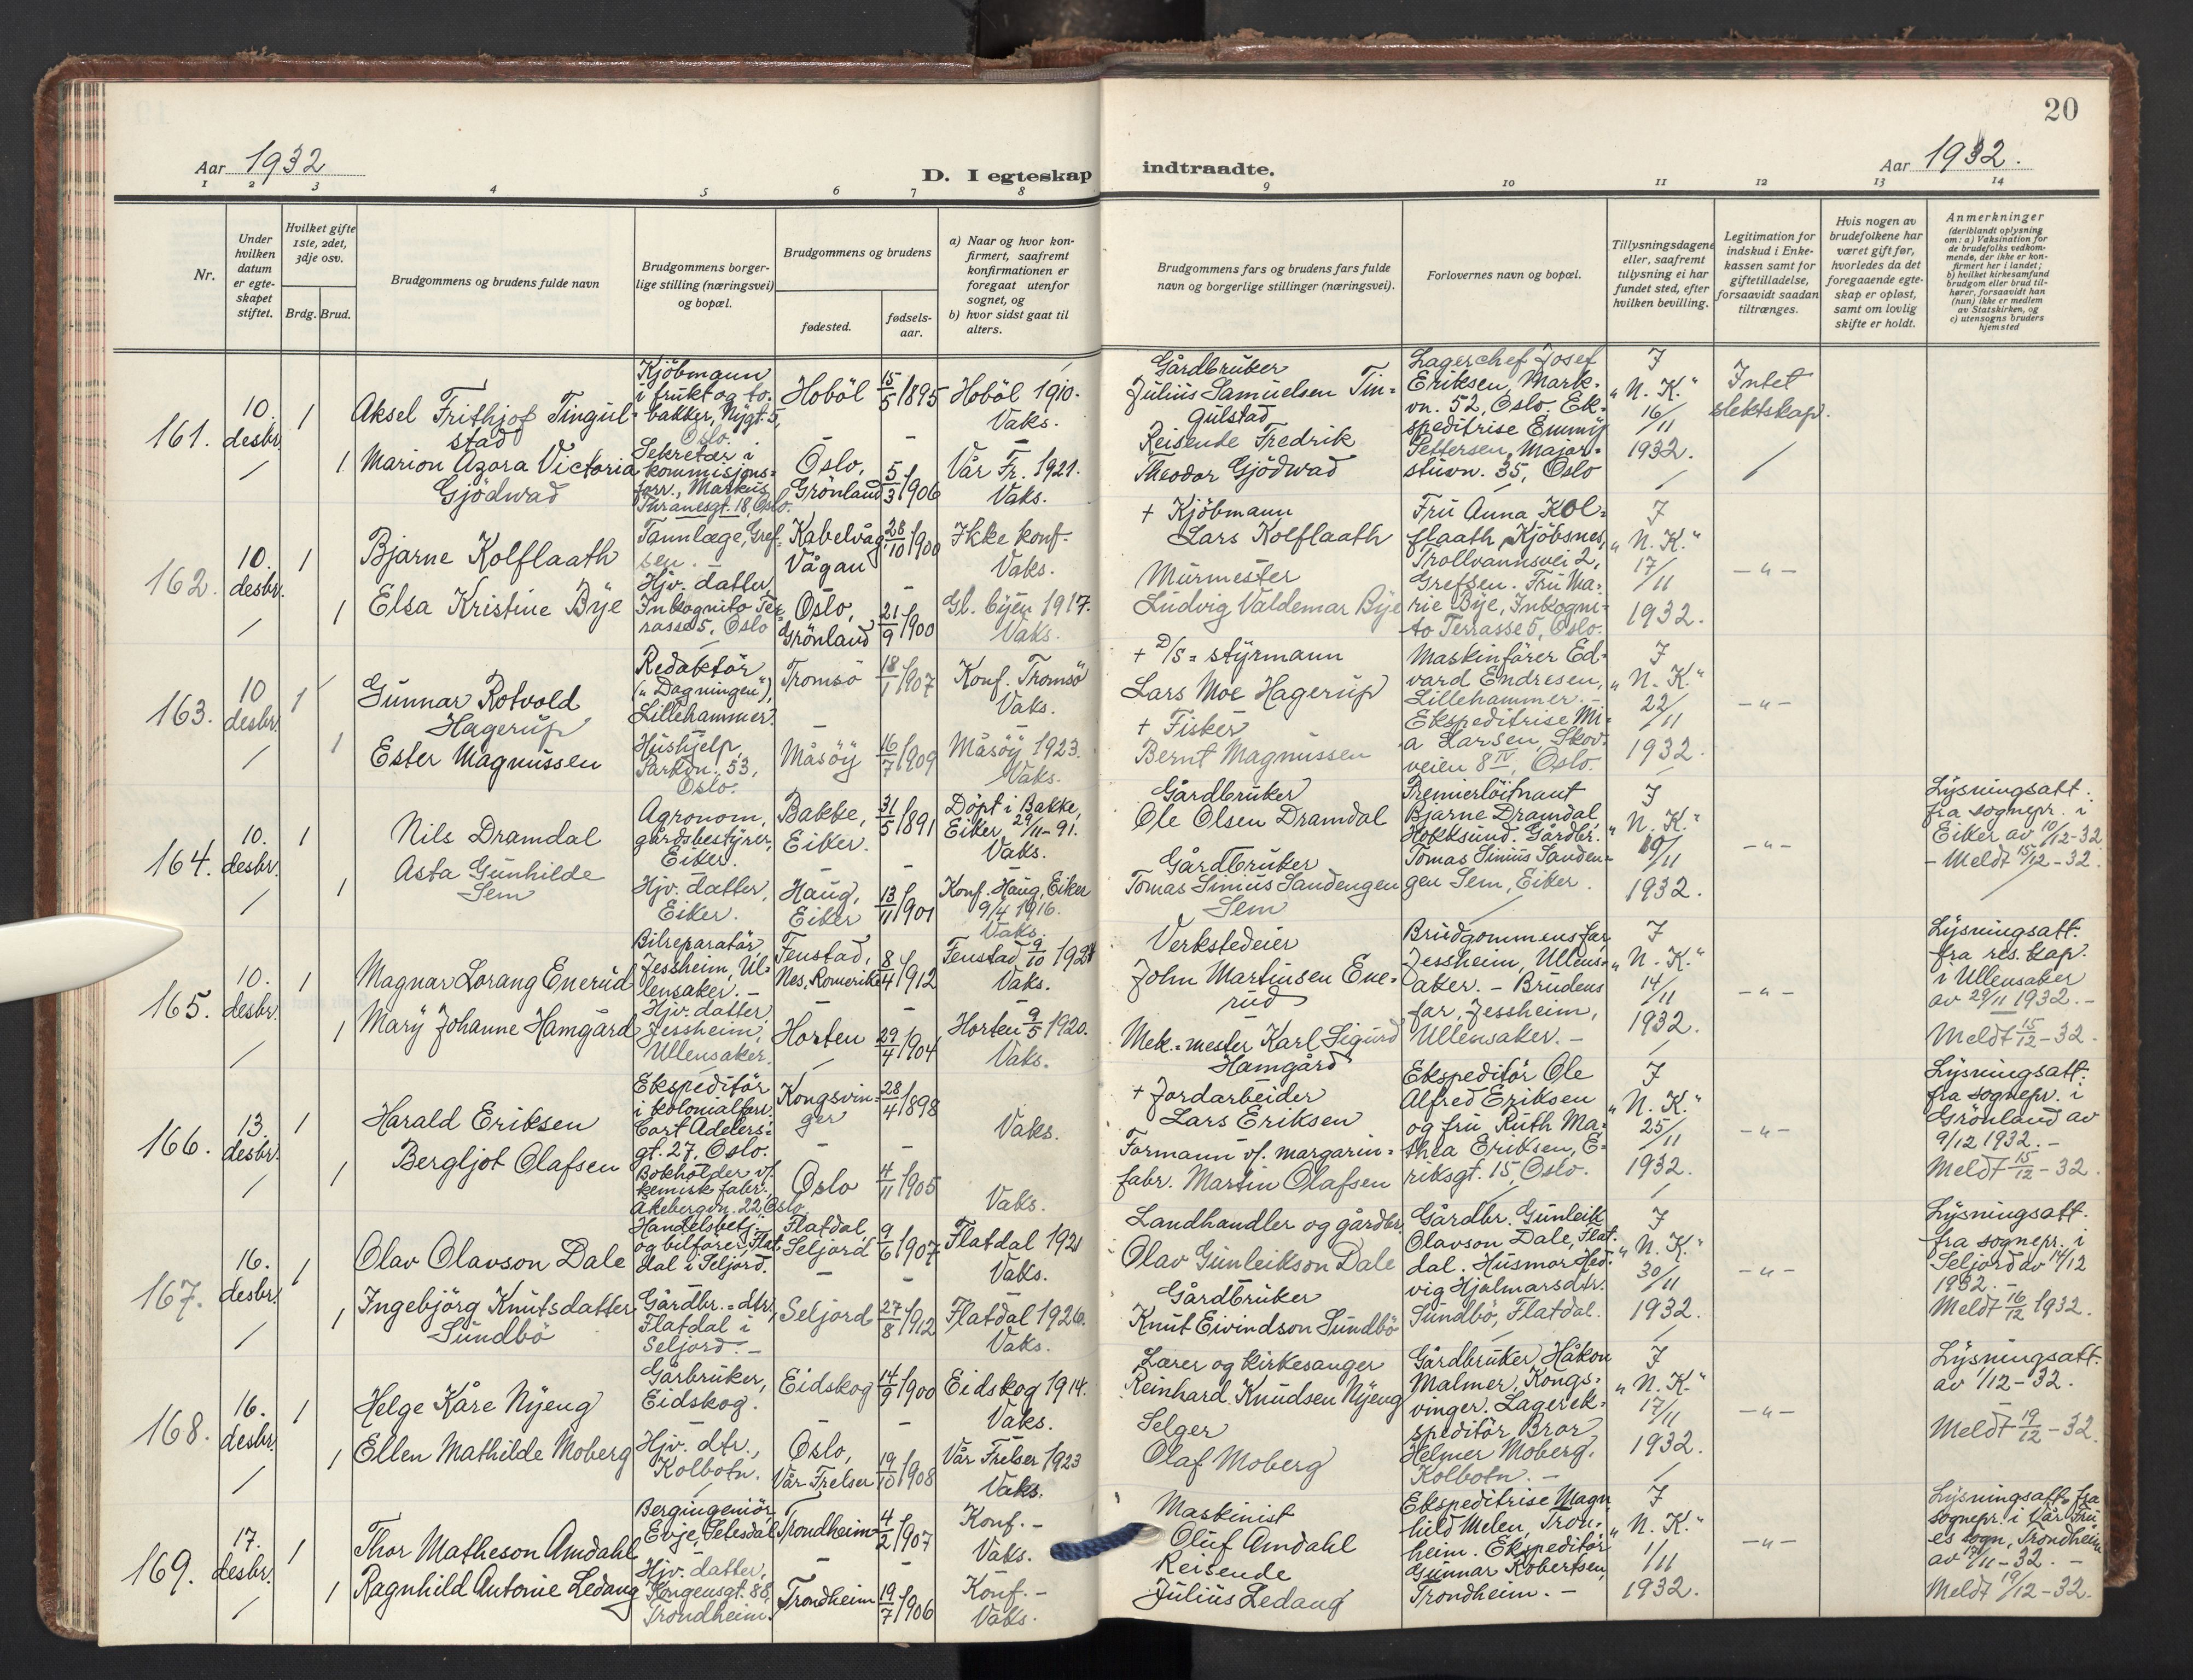 20
Aar 1932
D. I egteskap
indtraadte.
Aar 1932.
1 2 3 4 5 6 7 8 9 10 11 12 13 14
Nr.
Under hvilken datum er egteskapet stiftet.
Hvilket gifte 1ste, 2det, 3dje osv.
Brdg. Brud.
Brudgommens og brudens fulde navn
Brudgommens borgerlige stilling (næringsvei) og bopæl.
Brudgommens og brudens
fødested.
fødselsaar.
a) Naar og hvor konfirmert, saafremt konfirmationen er foregaat utenfor sognet, og
b) hvor sidst gaat til alters.
Brudgommens fars og brudens fars fulde navn og borgerlige stillinger (næringsvei).
Forlovernes navn og bopæl.
Tillysningsdagene eller, saafremt tillysning ei har fundet sted, efter hvilken bevilling.
Legitimation for indskud i Enkekassen samt for giftetilladelse, forsaavidt saadan tiltrænges.
Hvis nogen av brudefolkene har været gift før, hvorledes da det foregaaende egteskap er opløst, samt om lovlig skifte er holdt.
Anmerkninger (deriblandt oplysning om: a) Vaksination for de brudefolks vedkommende, der ikke er konfirmert her i landet; b) hvilket kirkesamfund brudgom eller brud tilhører, forsaavidt han (hun) ikke er medlem av Statskirken, og c) utensogns bruders hjemsted
161. 10. desbr. 1
Aksel Frithjof Tingulstad
Kjöbmann i frukt og tobakker, Nygt. 5, Oslo.
Hoböl 15/5 1895 Hoböl 1910. Vaks.
Gårdbruker Julius Samuelsen Tingulstad
Lagerchef Josef Eriksen, Markvn. 52, Oslo. Ekspeditrise Emmy Pettersen, Majorstuvn. 35, Oslo
I "N. K." 16/11 1932.
Intet slektskap.
1 Marion Azora Victoria Gjödwad
Sekretær i kommisjonsforr., Markus Thranesgt. 18, Oslo.
Oslo, Grönland 5/3 1906 Vår Fr. 1921. Vaks.
Reisende Fredrik Theodor Gjödwad
162. 10. desbr. 1
Bjarne Kolflaath
Tannlæge, Grefsen.
Kabelvåg Vågan 28/10 1900 Ikke konf. Vaks.
+ Kjöbmann Lars Kolflaath
Fru Anna Kolflaath, Kjöbsnes, Trollvannsvei 2, Grefsen. Fru Marie Bye, Inkognito Terrasse 5, Oslo.
I "N. K." 17/11 1932.
— " —
1 Elsa Kristine Bye
Hjv. datter, Inkognito Terrasse 5, Oslo
Oslo, Grönland 21/9 1900 Gl. byen 1917. Vaks.
Murmester Ludvig Valdemar Bye
163. 10 desbr. 1
Gunnar Rotvold Hagerup
Redaktör ("Dagningen"), Lillehammer.
Tromsö 18/1 1907 Konf. Tromsö Vaks.
+ D/S = styrmann Lars Moe Hagerup
Maskinfører Edvard Endresen, Lillehammer. Ekspeditrise Mia Larsen, Skovveien 8 IV, Oslo.
I "N. K." 22/11 1932.
— " —
1 Ester Magnussen
Hushjelp, Parkvn. 53, Oslo.
Måsöy 16/7 1909 Måsöy 1923. Vaks.
+ Fisker Bernt Magnussen
164. 10. desbr. 1
Nils Dramdal
Agronom, gårdsbestyrer, Eiker.
Bakke, Eiker. 31/5 1891 Döpt i Bakke, Eiker 29/11-91. Vaks.
Gårdbruker Ole Olsen Dramdal
Premierlöitnant Bjarne Dramdal, Hokksund. Gårdbr. Tomas Simius Sandengen Sem, Eiker.
I "N. K." 19/11 1932.
— " —
Lysningsatt. fra sognepr. i Eiker av 10/12-32 - Meldt 15/12-32.
1 Asta Gunhilde Sem
Hjv. datter, Eiker.
Haug, Eiker 13/11 1901 Konf. Haug, Eiker 9/4 1916. Vaks.
Gårdbruker Tomas Simius Sandengen Sem
165. 10. desbr. 1
Magnar Lorang Enerud
Bilreparatör Jessheim, Ullensaker. -
Fenstad, Nes, Romerike 8/4 1912 Fenstad 9/10 1927 Vaks.
Verkstedeier John Martinsen Enerud
Brudgommens far Jessheim, Ullensaker. - Brudens far, Jessheim, Ullensaker. -
I "N. K." 14/11 1932.
— " —
Lysningsatt. fra res. kap. i Ullensaker av 29/11 1932. - Meldt 15/12-32.
1 Mary Johanne Hamgård
Hjv. datter, Jessheim, Ullensaker.
Horten 29/4 1904 Horten 9/5 1920. Vaks.
Mek.=mester Karl Sigurd Hamgård
166. 13. desbr. 1
Harald Eriksen
Ekspeditör i kolonialforr. Cort Adelersgt. 27, Oslo.
Kongsvinger 28/4 1898 Vaks.
+ Jordarbeider Lars Eriksen
Ekspeditör Ole Alfred Eriksen og fru Ruth Mathea Eriksen, Eriksgt. 15, Oslo.
I "N. K." 25/11 1932.
— " —
Lysningsatt. fra sognepr. i Grönland av 9/12 1932. - Meldt 15/12-32.
1 Bergljot Olafsen
Bokholder vf. kemisk fabr., Åkebergvn. 22, Oslo.
Oslo 4/11 1905 Vaks.
Formann vf. margarinfabr. Martin Olafsen
167. 16. desbr. 1
Olav Olavson Dale
Handelsbetj. og bilförer, Flatdal i Seljord.
Flatdal, Seljord 9/6 1907 Flatdal 1921 Vaks.
Landhandler og gårdbr. Olav Gunleikson Dale
Gårdbr. Gunleik Olavson Dale, Flatdal. Husmor Hedvig Hjalmarsdtr. Sundbö, Flatdal.
I "N. K." 30/11 1932.
— " —
Lysningsatt. fra sognepr. i Seljord av 14/12 1932. - Meldt 16/12 1932.
1 Ingebjörg Knutsdatter Sundbö
Gårdbr.=dtr., Flatdal i Seljord. -
Seljord 27/8 1912 Flatdal 1926. Vaks.
Gårdbruker Knut Eivindson Sundbö
168. 16. desbr. 1
Helge Kåre Nyeng
Gårbruker, Eidskog.
Eidskog 14/9 1900 Eidskog 1914. Vaks.
Lærer og kirkesanger Reinhard Knudsen Nyeng
Gårdbruker Håkon Malmer, Kongsvinger. Lagerekspeditör Bror Helmer Moberg, Kolbotn. -
I "N. K." 17/11 1932.
— " —
Lysningsatt. av 1/12-32. - Meldt 19/12-32
1 Ellen Mathilde Moberg
Hjv. dtr., Kolbotn.
Oslo, Vår Frelser 19/10 1908 Vår Frelser 1923 Vaks.
Selger Olaf Moberg
169. 17. desbr. 1
Thor Matheson Amdahl
Bergingeniör, Evje, Setesdal
Trondheim 4/2 1907 Konf. - Vaks.
Maskinist Oluf Amdahl
Ekspeditrise Magnhild Melen, Trondheim. Ekspeditör Gunnar Robertsen, Trondheim. -
I "N. K." 1/11 1932.
— " —
Lysningsatt. fra sognepr. i Vår Frues sogn, Trondheim av 17/11-32. - Meldt 19/12-32.
1 Ragnhild Antonie Ledang
Hjv. datter, Kongensgt. 88, Trondheim.
Trondheim 19/7 1906 Konf. - Vaks.
Reisende Julius Ledang